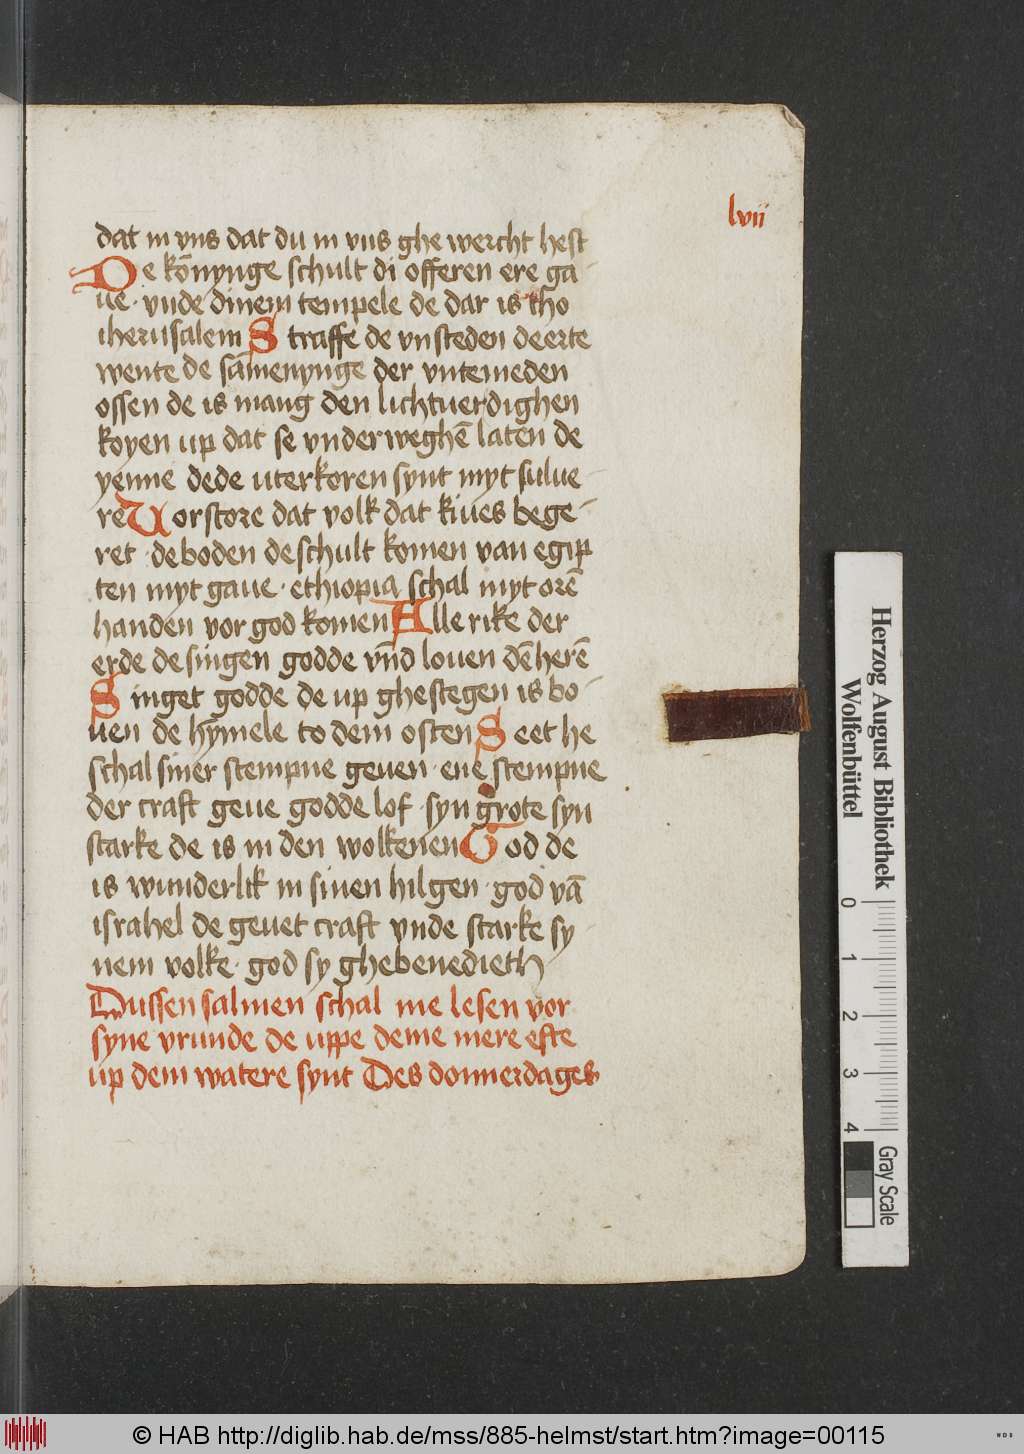 lvii
dat in vns dat du in vns ghe wercht hest
De kōnynge schult di offeren ere ga-
ue · vnde dinem tempele de dar is tho
iherusalem Straffe de vnsteden deerte
wente de samenynge der vntemeden
ossen de is mang den lichtuerdighen
koyen up dat se vnderweghē laten de
yenne dede uterkoren synt myt sulue-
re Vorstore dat volk dat kiues bege-
ret · de boden de schult komen van egip
ten myt gaue · ethiopia schal myt orē
handen vor god komen Alle rike der
erde de singen godde vn̄d louen dē herē
Singet godde de up ghestegen is bo-
uen de hymele to dem osten Seet he
schal siner stempne geuen · ene stempne
der craft geue godde lof · syn grote syn
starke de is in den wolkenen God de
is wunderlik in sinen hilgen · god vā
israhel de geuet craft vnde starke sy-
nem volke · god sy ghebenedieth
Dussen salmen schal me lesen vor
syne vrunde de uppe deme mere efte
up dem watere synt Des donnerdages
Herzog August Bibliothek
Wolfenbüttel
0 1 2 3 4
Gray Scale
© HAB http://diglib.hab.de/mss/885-helmst/start.htm?image=00115